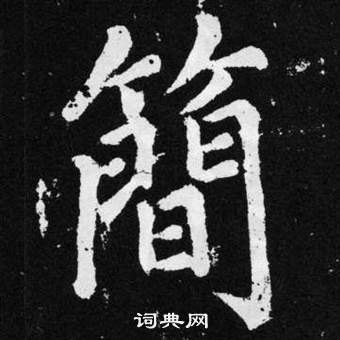 簡
词典网